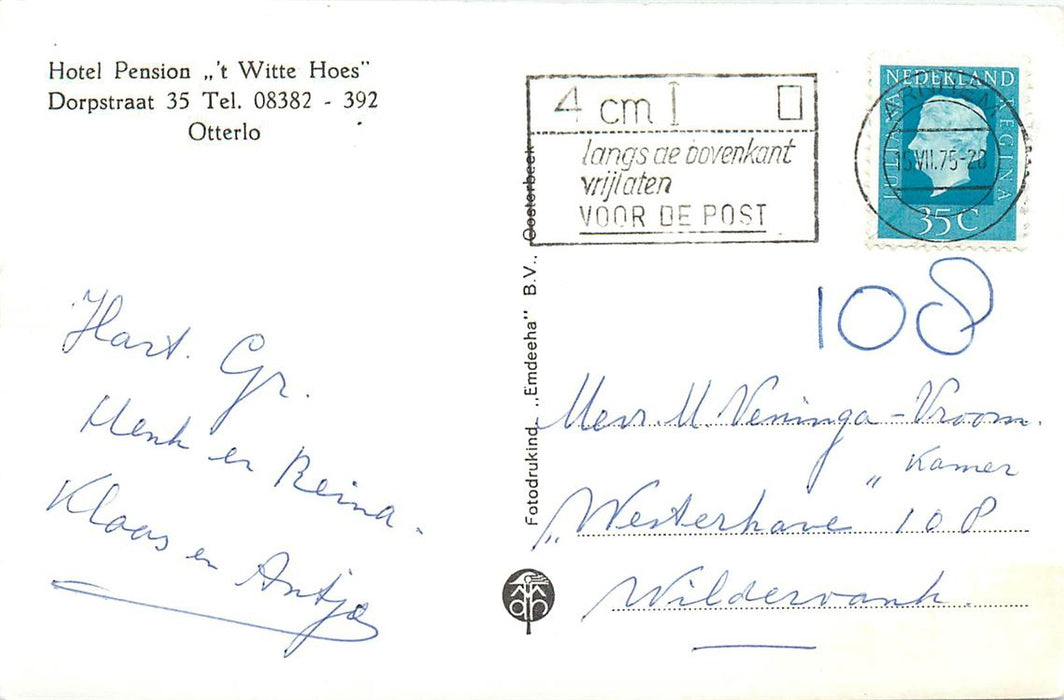 Hotel Pension „'t Witte Hoes"
Dorpstraat 35 Tel. 08382 - 392
Otterlo
4 cm
langs de bovenkant
vrijlaten
VOOR DE POST
NEDERLAND
JULIANA REGINA
35 C
ARNHEM
15.VII.75-20
108
Hart. Gr.
Henk en Reina.
Klaas en Antje
Fotodrukind. „Emdeeha" B.V., Oosterbeek
Mevr. M. Veninga - Vroom.
„ Kamer
„Westerhave 108
Wildervank.